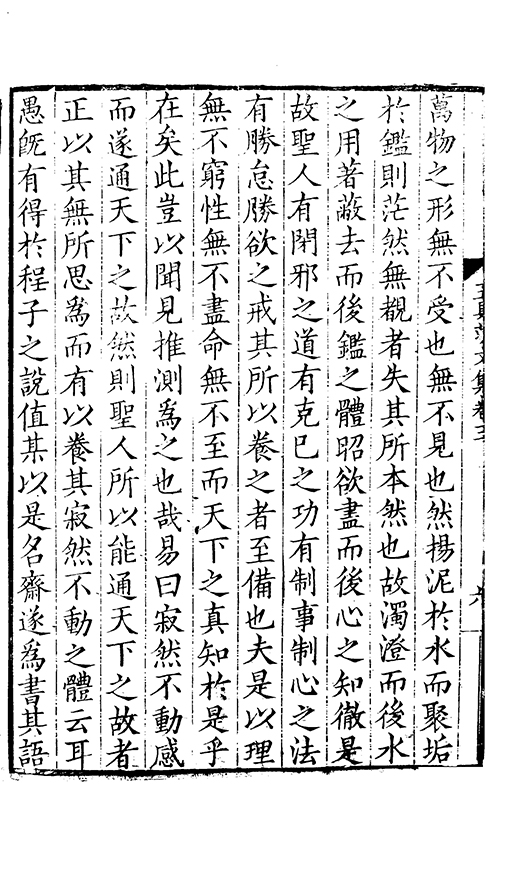 萬物之形無不受也無不見也然揚泥於水而聚垢
於鑑則茫然無覩者失其所本然也故濁澄而後水
之用著蔽去而後鑑之體昭欲盡而後心之知徹是
故聖人有閑邪之道有克已之功有制事制心之法
有勝怠勝欲之戒其所以養之者至備也夫是以理
無不窮性無不盡命無不至而天下之真知於是乎
在矣此豈以聞見推測為之也哉易曰寂然不動感
而遂通天下之故然則聖人所以能通天下之故者
正以其無所思為而有以養其寂然不動之體云耳
愚既有得於程子之說值某以是名齋遂為書其語
文集卷三
六